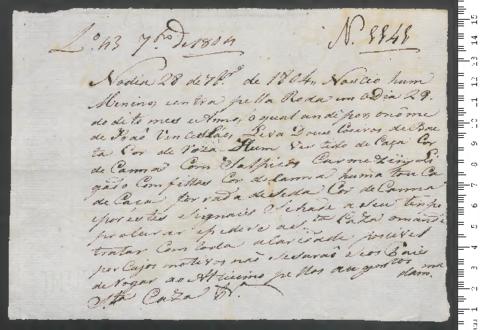 Lº. 43 7bro de 1804 N. 1141
No dia 28 de 7bro. de 1804 Nasceo hum
Menino, e entra pella Roda em o Dia 29.
do dito mes e Anno, o qual an de por o nome
de João Vencesláo, Leva Dous Coeiros de Bae
ta Cor de Roza Hum Vestido de Caça Cor
de Canna Com
Com fittas Cor de Canna huma touca
de Caça forrada de seda Cor de Canna
e por estes Signaes Se hade a Seu tempo
procurar e pede-se a esta Sta. Caza o mande
tratar Com toda a Caridade posivel
por Cujos motivos não Seçarão Seos Pais
de Rogar ao Altissimo pellos augmentos
Sta. Caza